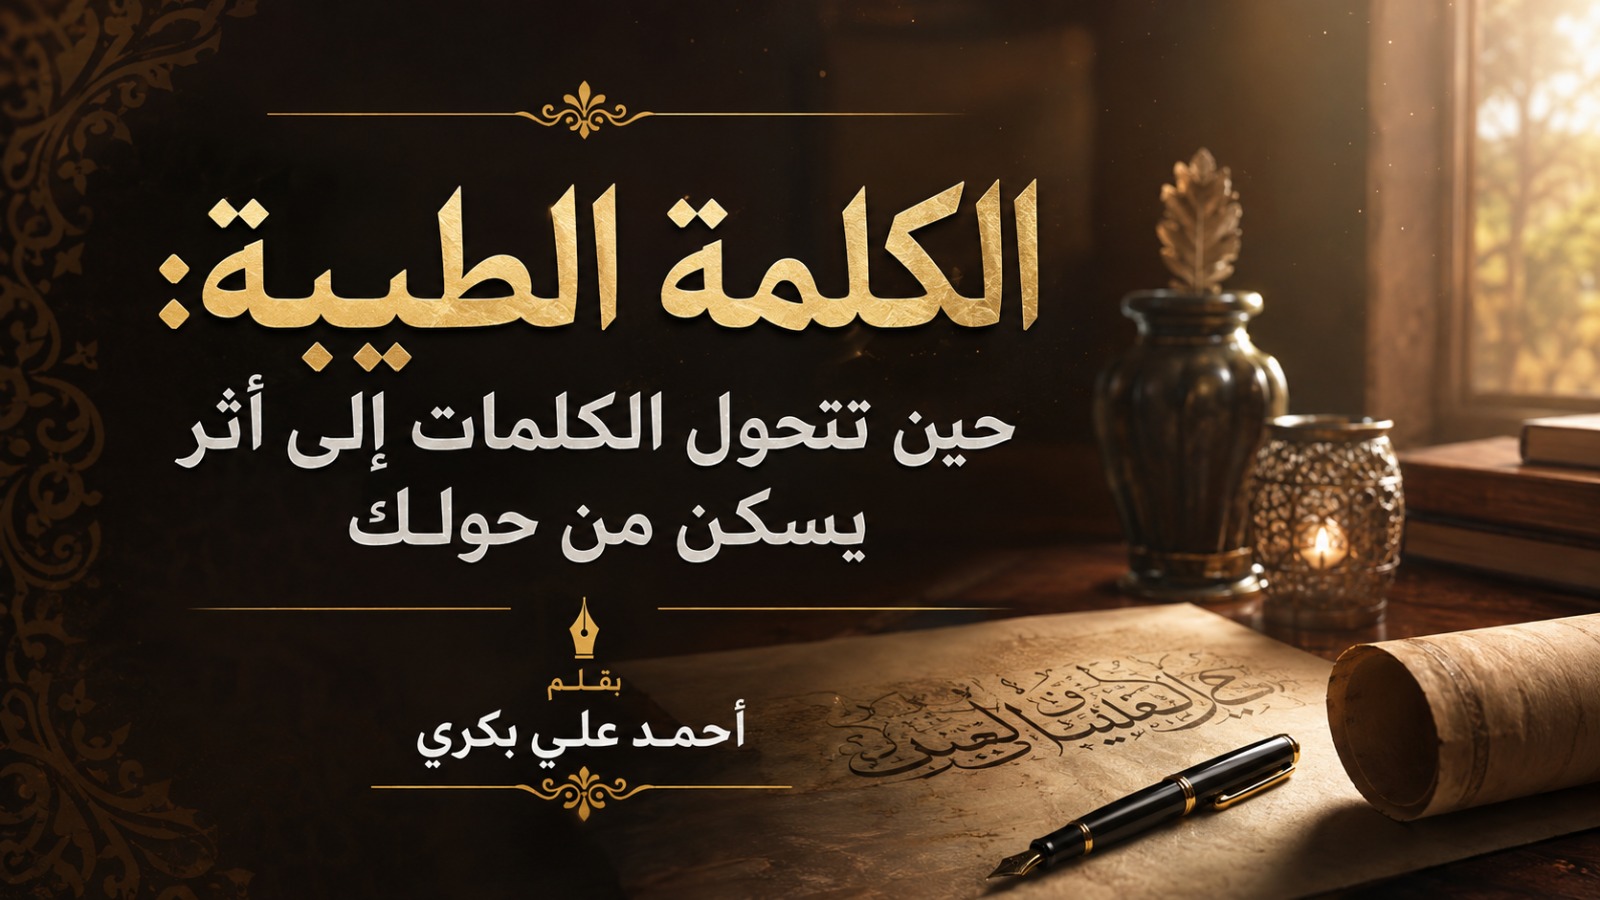 الكلمة الطيبة:
حين تتحول الكلمات إلى أثر
يسكن من حولك
بقلم
أحمد علي بكري